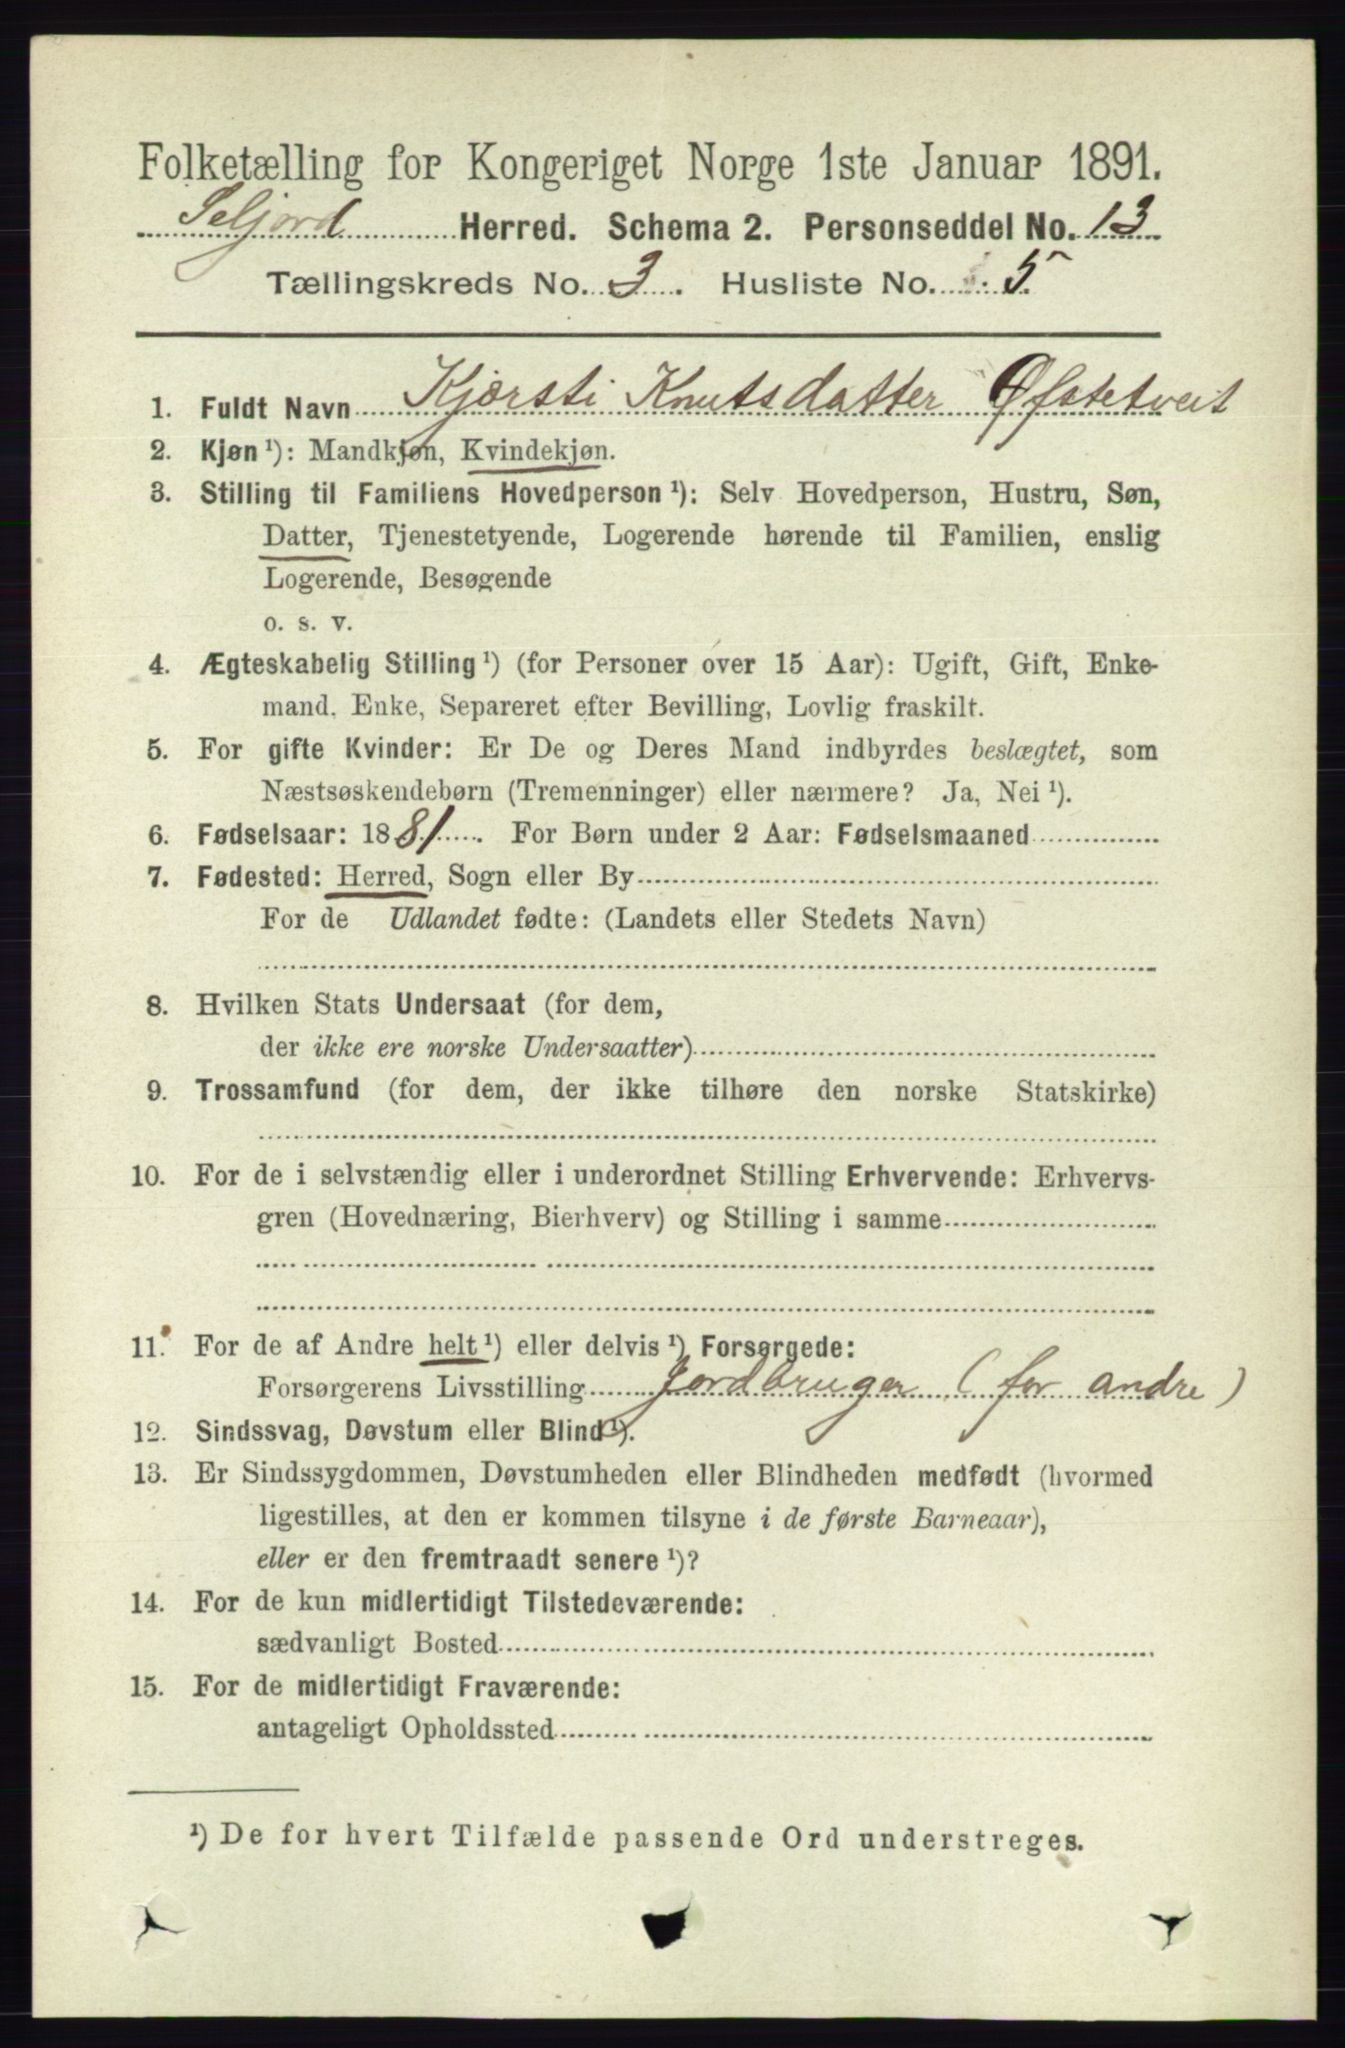 Folketælling for Kongeriget Norge 1ste Januar 1891.
Seljord Herred. Schema 2. Personseddel No. 13
Tællingskreds No. 3. Husliste No. 5
1. Fuldt Navn Kjørsti Knutsdatter Øfstetveit
2. Kjøn ¹): Mandkjøn, Kvindekjøn.
3. Stilling til Familiens Hovedperson ¹): Selv Hovedperson, Hustru, Søn,
Datter, Tjenestetyende, Logerende hørende til Familien, enslig
Logerende, Besøgende
o. s. v.
4. Ægteskabelig Stilling ¹) (for Personer over 15 Aar): Ugift, Gift, Enke-
mand, Enke, Separeret efter Bevilling, Lovlig fraskilt.
5. For gifte Kvinder: Er De og Deres Mand indbyrdes beslægtet, som
Næstsøskendebørn (Tremenninger) eller nærmere? Ja, Nei ¹).
6. Fødselsaar: 1881. For Børn under 2 Aar: Fødselsmaaned
7. Fødested: Herred, Sogn eller By
For de Udlandet fødte: (Landets eller Stedets Navn)
8. Hvilken Stats Undersaat (for dem,
der ikke ere norske Undersaatter)
9. Trossamfund (for dem, der ikke tilhøre den norske Statskirke)
10. For de i selvstændig eller i underordnet Stilling Erhvervende: Erhvervs-
gren (Hovednæring, Bierhverv) og Stilling i samme
11. For de af Andre helt ¹) eller delvis ¹) Forsørgede:
Forsørgerens Livsstilling Jordbruger (for andre)
12. Sindssvag, Døvstum eller Blind ¹).
13. Er Sindssygdommen, Døvstumheden eller Blindheden medfødt (hvormed
ligestilles, at den er kommen tilsyne i de første Barneaar),
eller er den fremtraadt senere ¹)?
14. For de kun midlertidigt Tilstedeværende:
sædvanligt Bosted
15. For de midlertidigt Fraværende:
antageligt Opholdssted
¹) De for hvert Tilfælde passende Ord understreges.